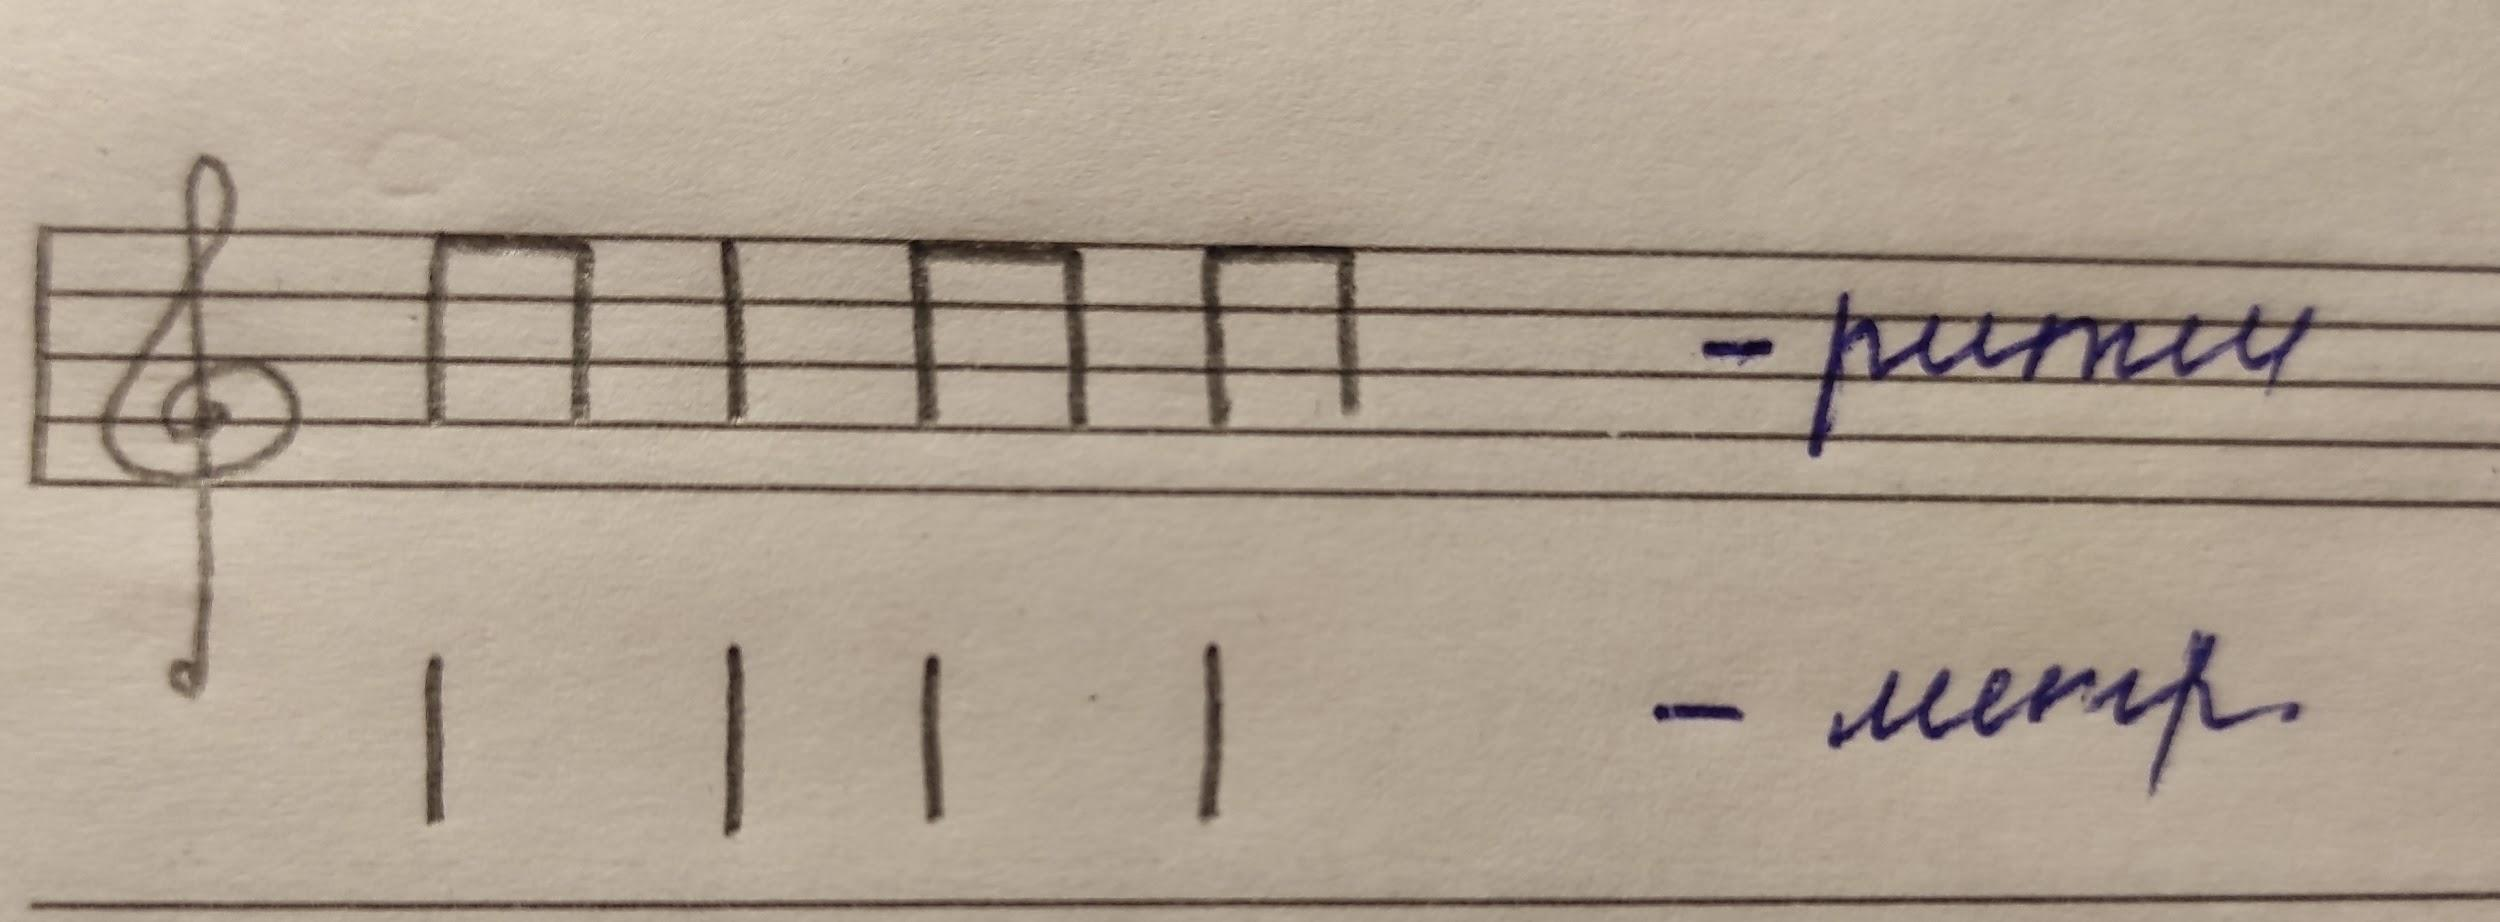 - ритм
- метр